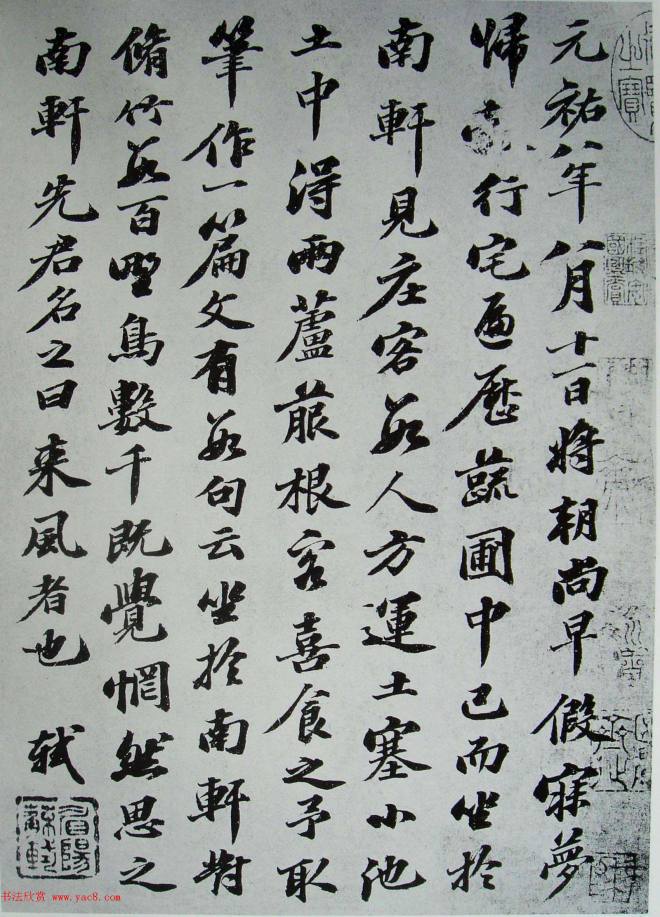 元祐八年八月十一日將朝尚早假寐夢
歸 行宅遍歷蔬圃中已而坐於
南軒見庄客數人方運土塞小池
土中得兩蘆菔根客喜食之予取
筆作一篇文有數句云坐於南軒對
脩竹數百野鳥數千既覺惘然思之
南軒先君名之曰来風者也
軾
眉陽蘇軾
书法欣赏 www.yac8.com